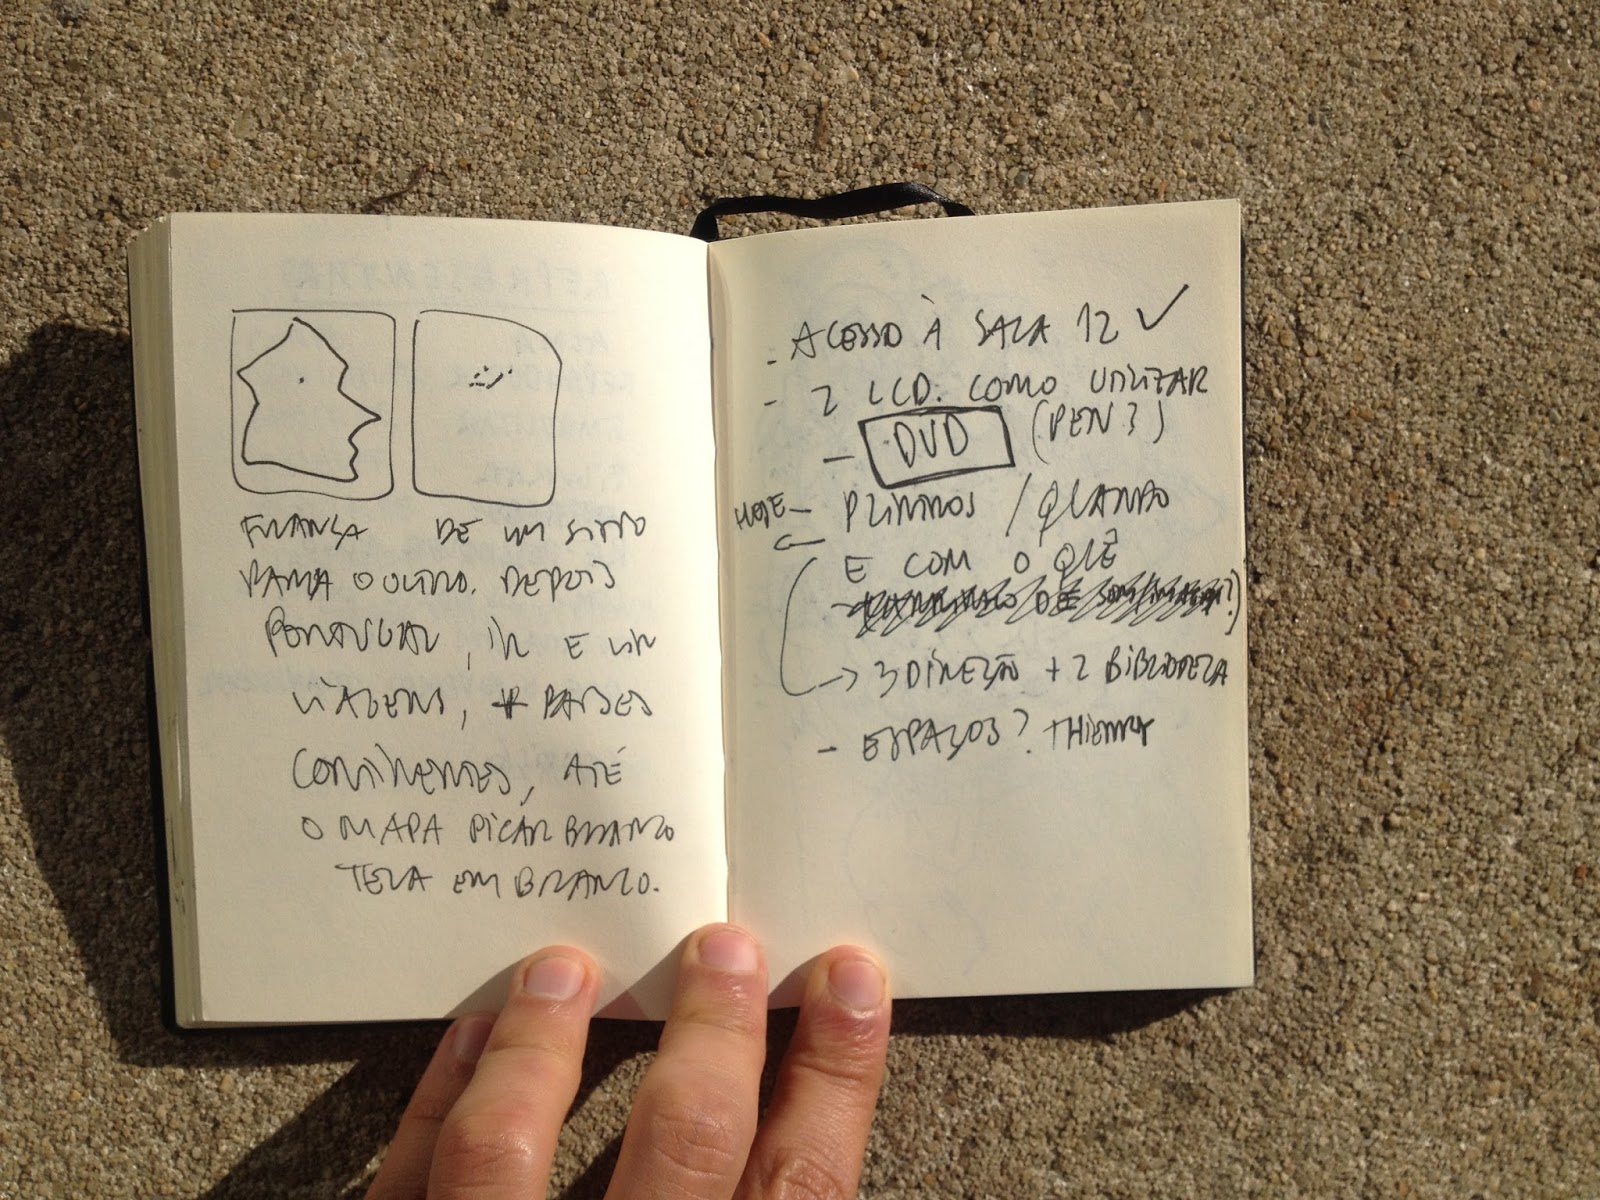 FRANÇA DE UM SITIO
PARA O OUTRO. DEPOIS
PORTUGAL, IR E VIR
VIAGENS, + PAISES
CONTINENTES, ATÉ
O MAPA FICAR BRANCO
TELA EM BRANCO.
- ACESSO À SALA 12 ✓
- 2 LCD. COMO UTILIZAR
- DVD (PEN?)
HOJE - PLINTHOS / QUANDO
E COM O QUÊ
→ 3 DIREÇÃO + 2 BIBLIOTECA
- ESPAÇOS? THIERRY